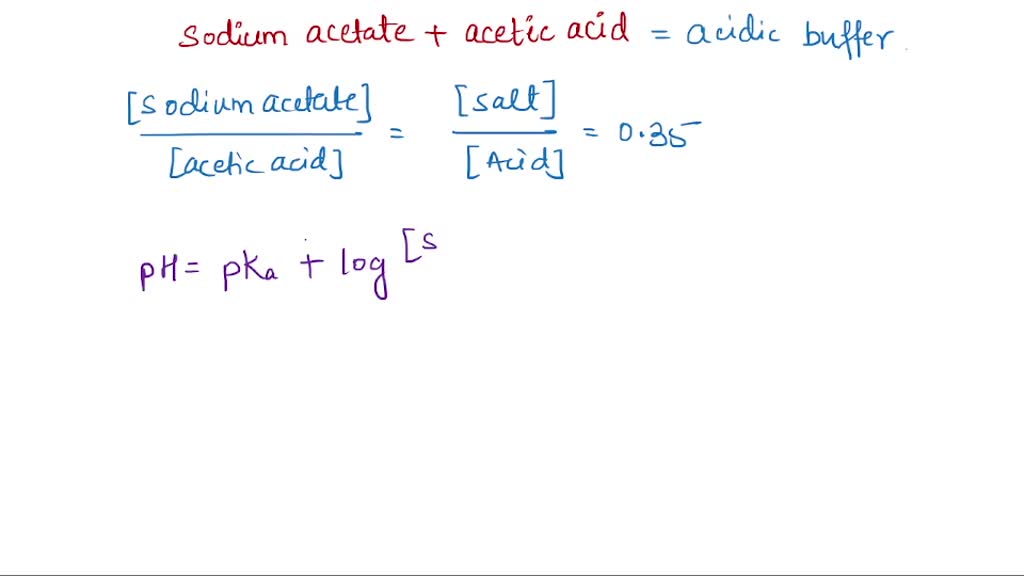 sodium acetate + acetic acid = acidic buffer
[sodium acetate] / [acetic acid] = [salt] / [Acid] = 0.35
pH = pKa + log [s